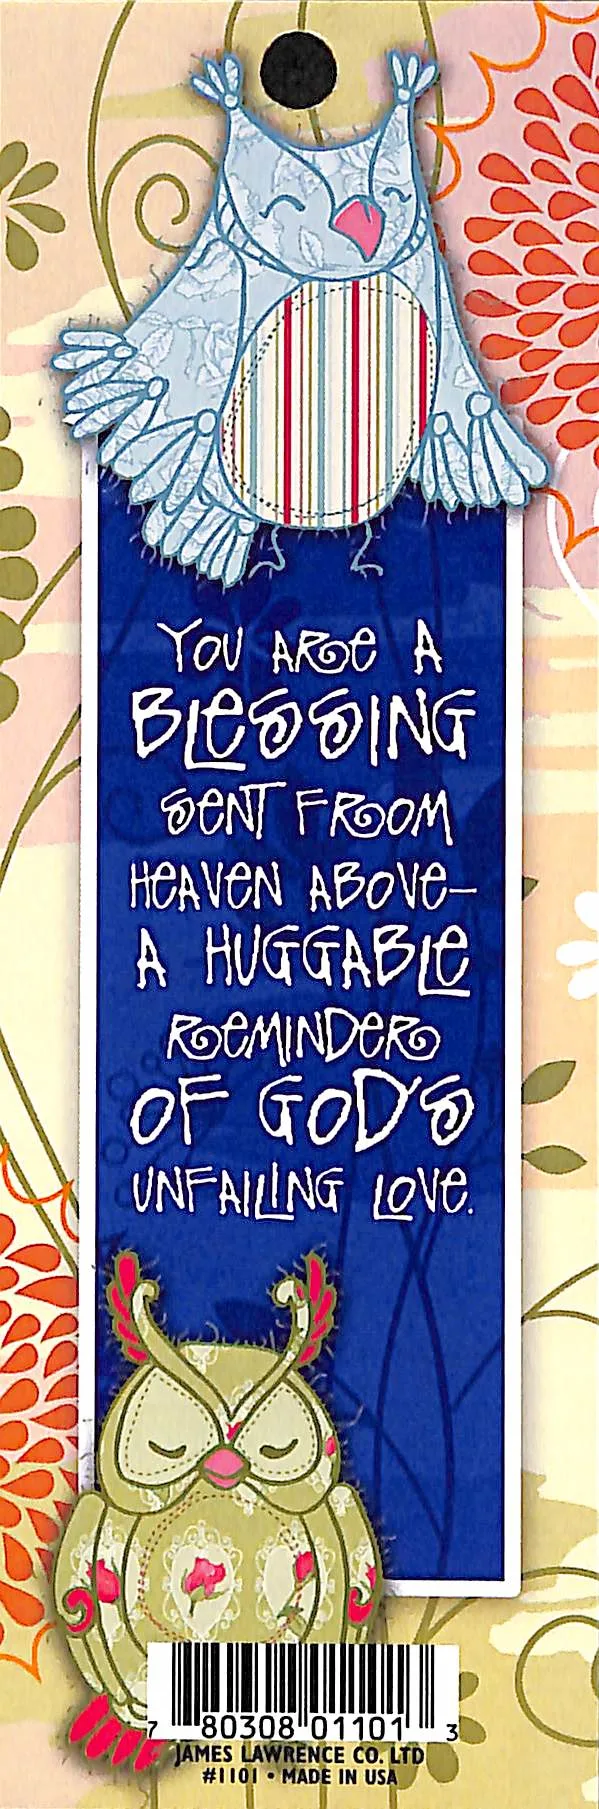 YOU ARE A
BLESSING
SENT FROM
HEAVEN ABOVE—
A HUGGABLE
REMINDER
OF GOD'S
UNFAILING LOVE.
7 80308 01101 3
JAMES LAWRENCE CO. LTD
#1101 • MADE IN USA